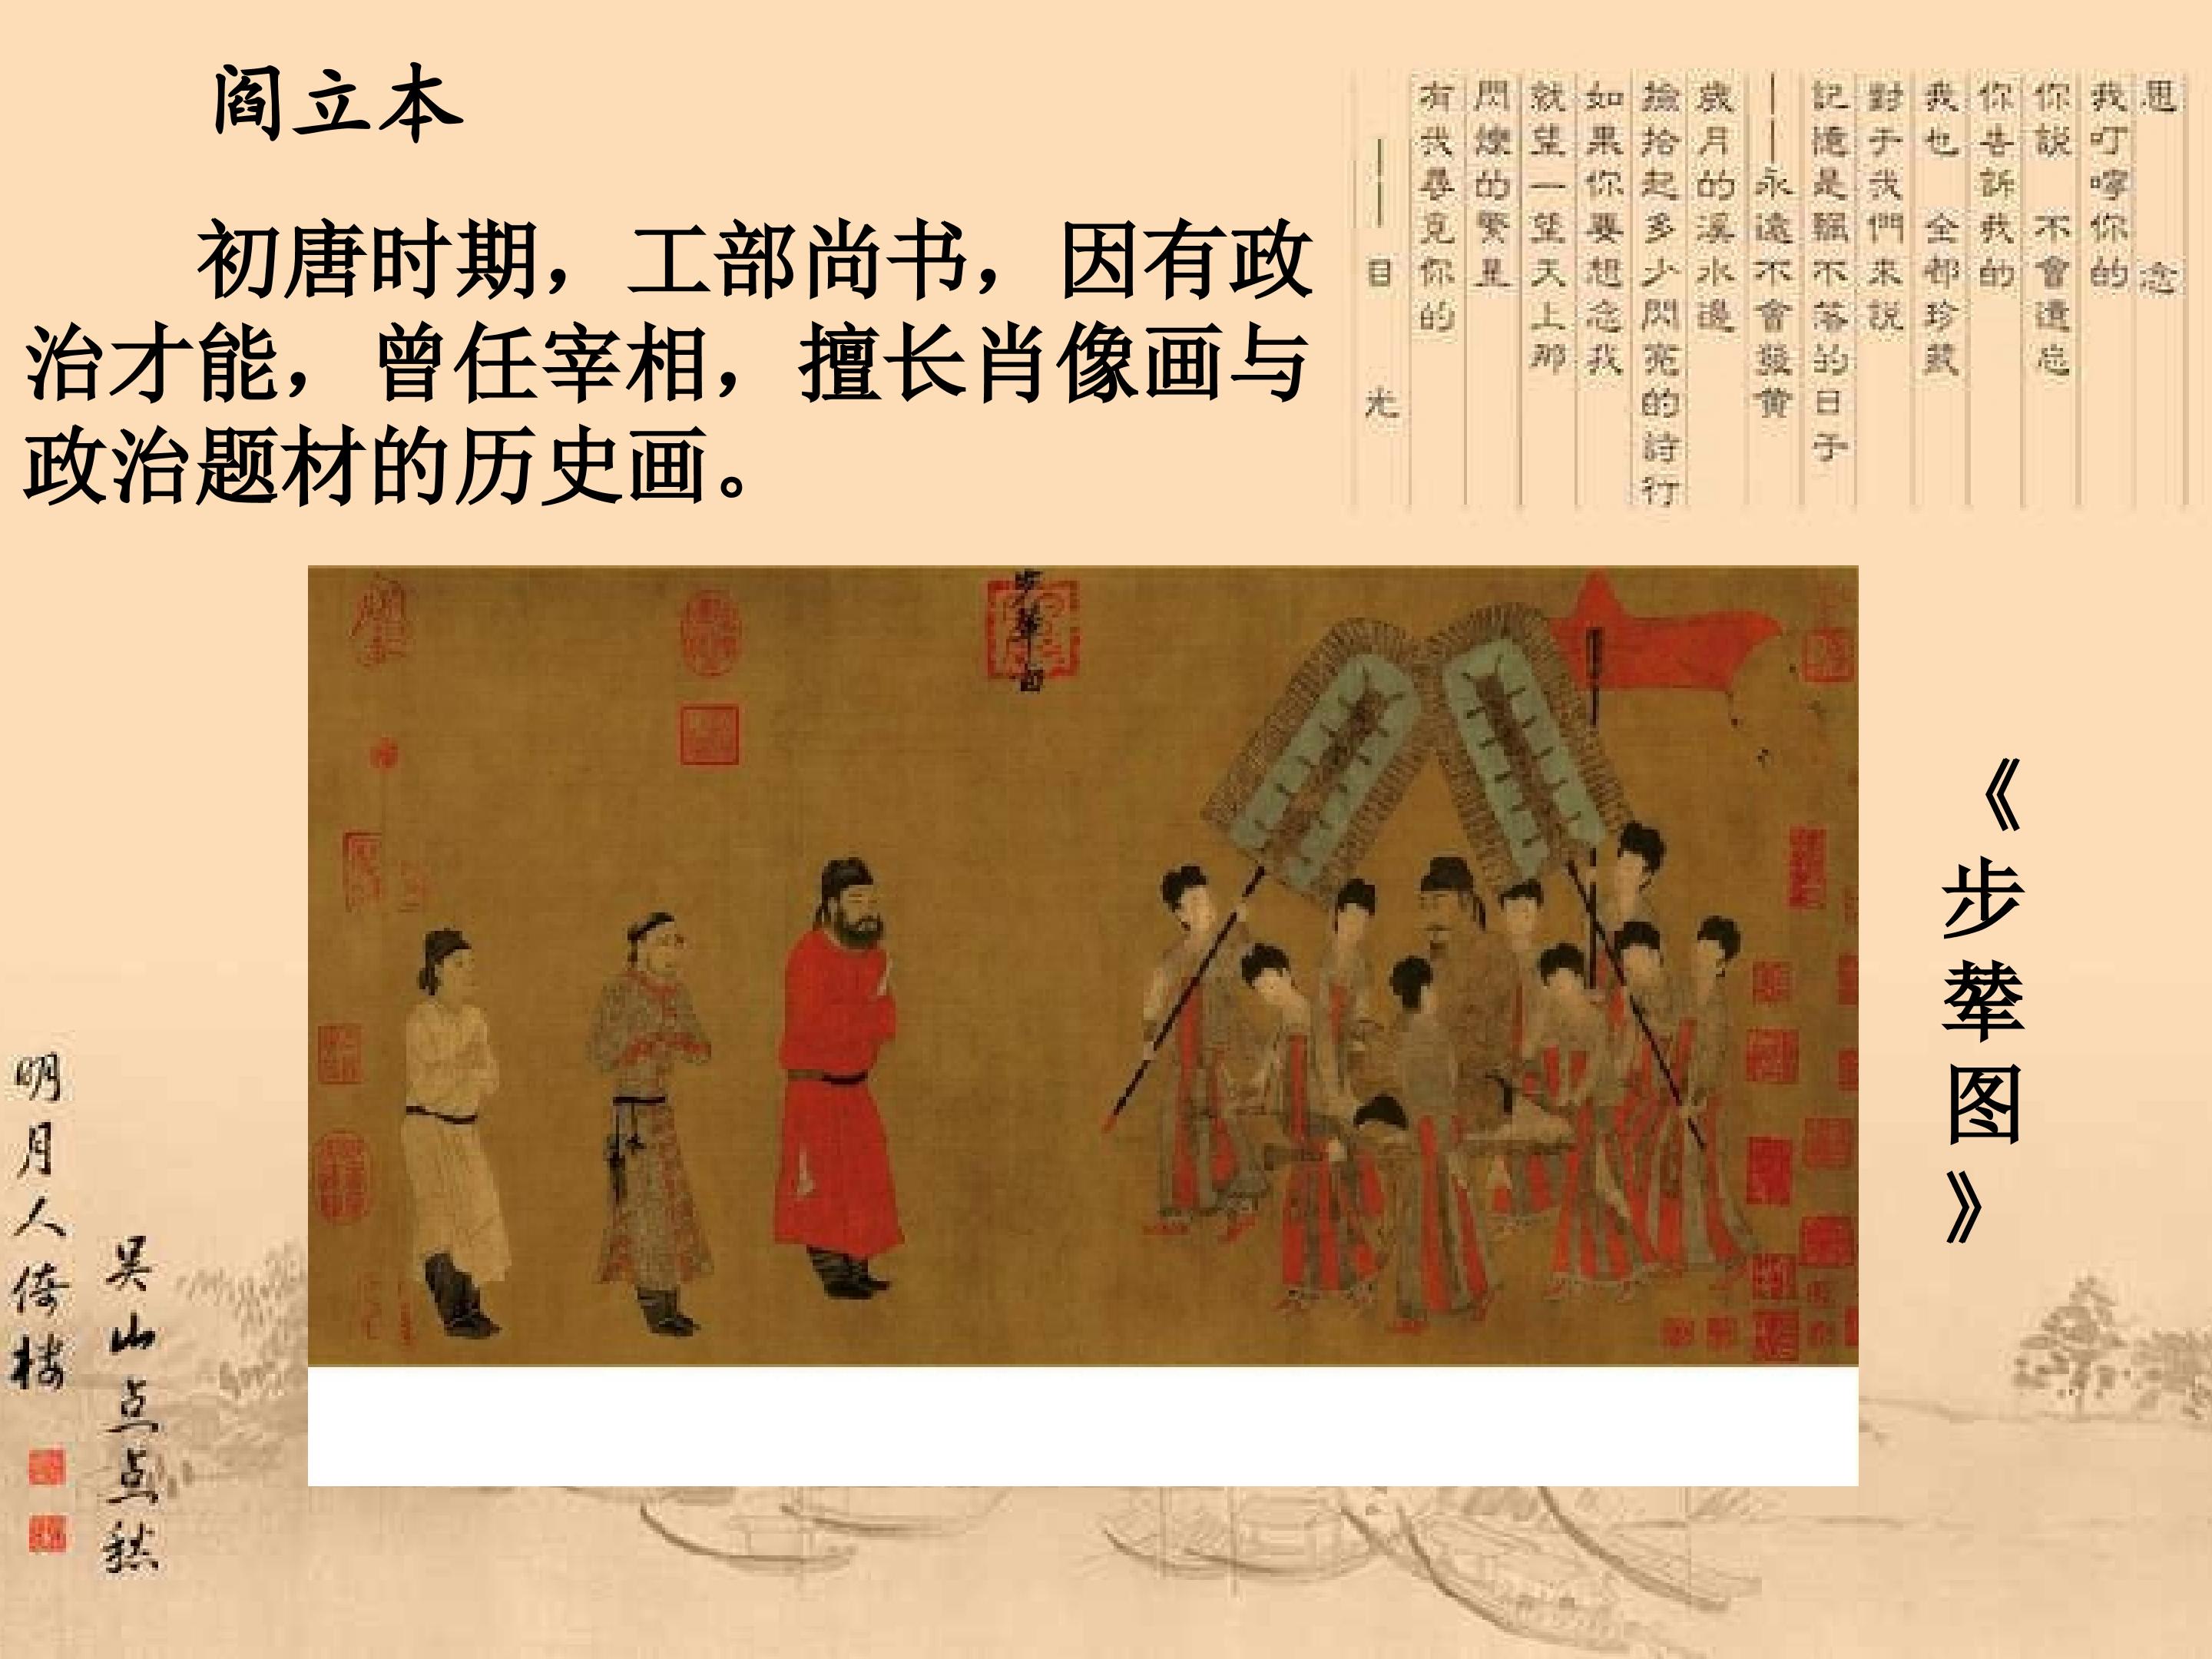 阎立本
初唐时期，工部尚书，因有政
治才能，曾任宰相，擅长肖像画与
政治题材的历史画。
思念
我叮嚀你的
你説 不會遺忘
你告訴我的
我也 全都珍藏
對于我們來説
記憶是飄不落的日子
——永遠不會發黄
歲月的溪水邊
撿拾起多少閃亮的詩行
如果你要想念我
就望一望天上那
閃爍的繁星
有我尋覓你的
——目光
《步辇图》
吴山点点愁
明月人倚楼